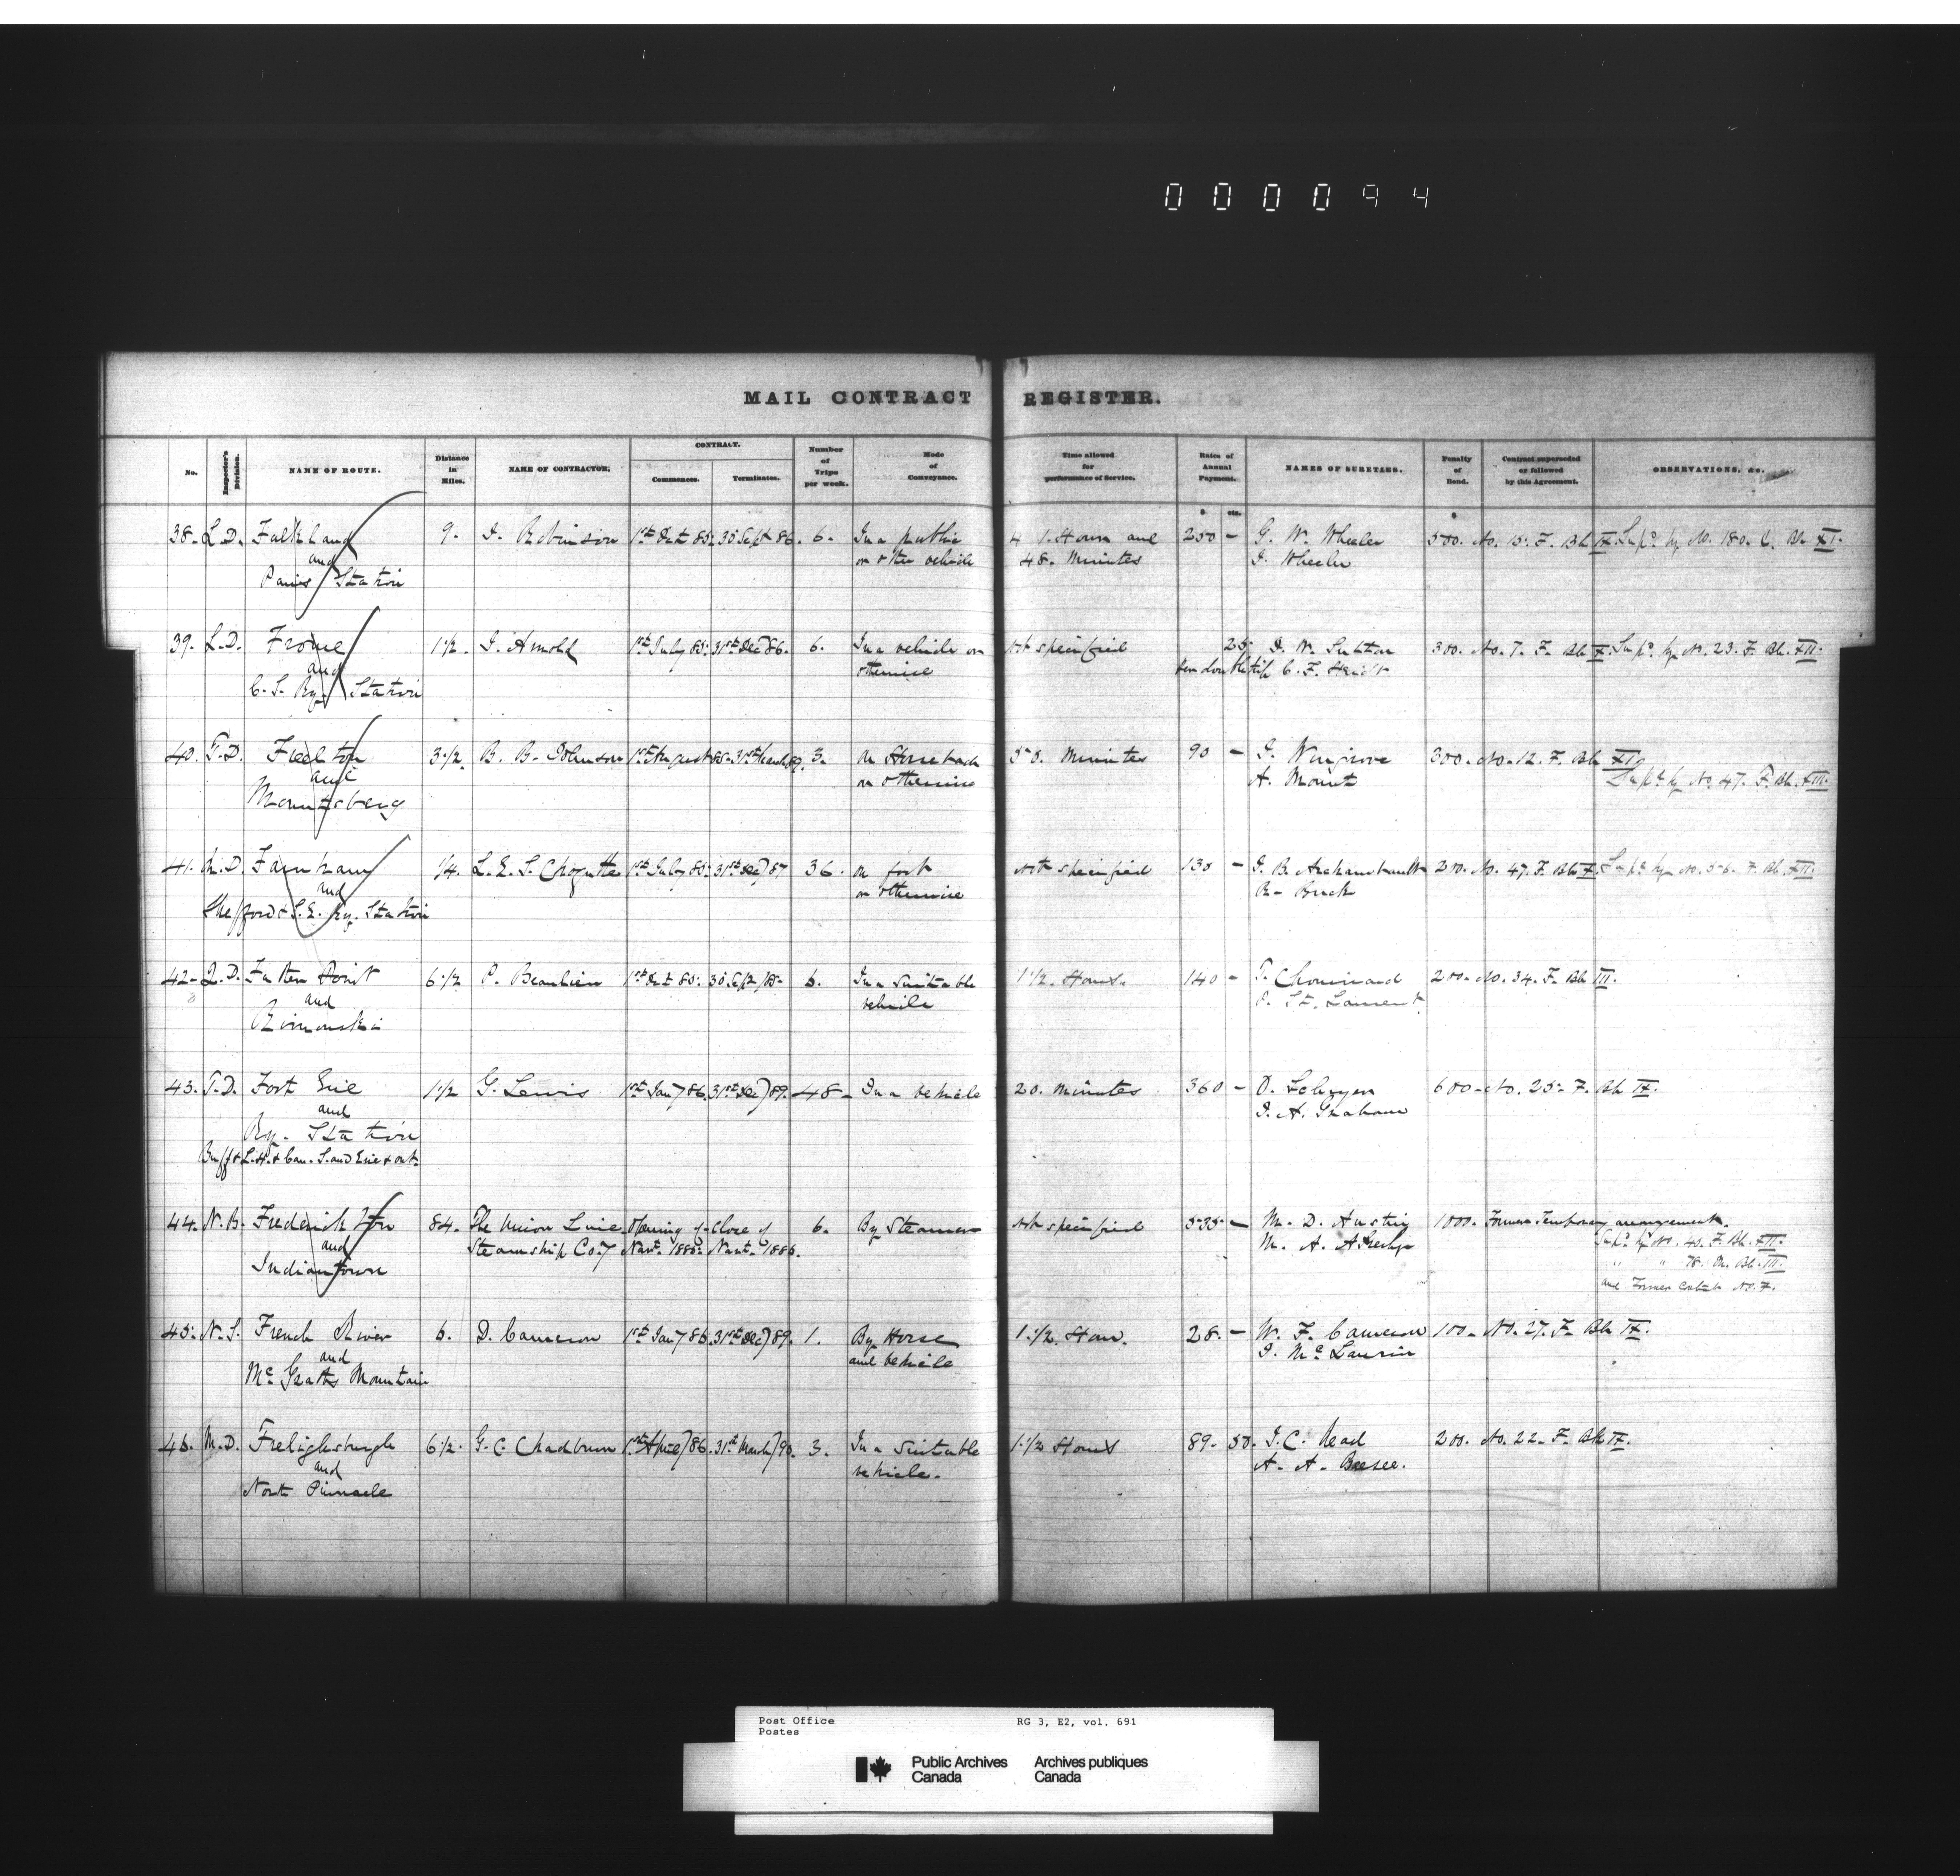 000094
MAIL CONTRACT REGISTER.
No. Inspector's Division. NAME OF ROUTE. Distance in Miles. NAME OF CONTRACTOR. CONTRACT. Commences. Terminates. Number of Trips per week. Mode of Conveyance. Time allowed for performance of Service. Rates of Annual Payment. NAMES OF SURETIES. Penalty of Bond. Contract superseded or followed by this Agreement. OBSERVATIONS, &c.
$ cts. $
38. L.D. Falkland 9. J. Robinson 1st Oct 85. 30 Sept 86. 6. In a public 1 Hour and 250 - G. W. Wheeler 500. No. 15. F. Bk IX. Sup'd by No. 180. C. Bk XI.
and or other vehicle 48. Minutes J. Wheeler
Paris Station
39. L.D. Frome 1 1/2. J. Arnold 1st July 85. 31st Decr 86. 6. In a vehicle or not specified 25 D. W. Sutton 300. No. 7. F. Bk X. Sup'd by No. 23. F. Bk. XII.
and otherwise per double trip C. F.
C. S. Ry. Station
40. T.D. Freelton 3 1/2. B. B. Johnson 1st August 85. 31st March 89. 3. On Horseback 50. Minutes 90 - J. Wingrove 300. No. 12. F. Bk XI.
and or otherwise A. Mount Sup'd by No. 47. F. Bk. XII.
Mountsberg
41. M.D. Farnham 1/4. L. E. S. Choquette 1st July 85. 31st Decr 87 36. On foot not specified 130 - G. B. Archambault 200. No. 47. F. Bk X. Sup'd by No. 56. F. Bk. XII.
and or otherwise
Shefford & S.E. Ry. Station
42. Q.D. Father Point 6 1/2 P. Beaulieu 1st Oct 85. 30 Sept 6. In a suitable 1 1/2. Hours. 140 - T. Chouinard 200. No. 34. F. Bk III.
and vehicle P. St. Laurent
Rimouski
43. T.D. Fort Erie 1 1/2 G. Lewis 1st Jany 86. 31st Decr 89. 48 - In a vehicle 20. Minutes 360 - O. 600 - No. 25. F. Bk IX.
and J. A. Graham
Ry. Station
Buff & L.H. & Can. S. and Erie & Ont.
44. N.B. Fredericton 84. The Union Line Opening of Close of 6. By Steamer not specified 535 - M. D. Austin 1000. Former Temporary arrangement.
and Steamship Coy Navn. 1885. Navn. 1886. M. A. Sup'd by No. 40. F. Bk. XII.
Indiantown " " 78. M. Bk. III.
and Former Contract No. F.
45. N.S. French River 6. D. Cameron 1st Jany 86. 31st Decr 89. 1. By Horse 1 1/2 Hour. 28. - W. F. Cameron 100. No. 27. F. Bk IX.
and and vehicle J. McLaurin
McGraths Mountain
46. M.D. Frelighsburgh 6 1/2. G. C. Chadburn 1st April 86. 31st March 90. 3. In a suitable 1 1/2 Hours 89. 50. J. C. Read 200. No. 22. F. Bk IX.
and vehicle. A. A. Breesee.
North Pinnacle
Post Office RG 3, E2, vol. 691
Postes
Public Archives Archives publiques
Canada Canada